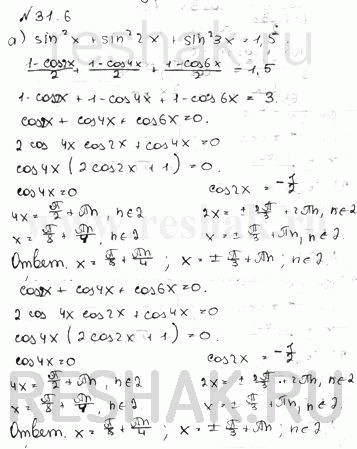 №31.6
а) sin²x + sin²2x + sin²3x = 1,5
(1-cos2x)/2 + (1-cos4x)/2 + (1-cos6x)/2 = 1,5
1-cos2x + 1-cos4x + 1-cos6x = 3
cos2x + cos4x + cos6x = 0.
2 cos 4x cos2x + cos4x = 0
cos4x (2cos2x + 1) = 0.
cos4x = 0 cos2x = -1/2
4x = π/2 + πn, n∈Z 2x = ± 2π/3 + 2πn, n∈Z
x = π/8 + πn/4, n∈Z x = ± π/3 + πn, n∈Z.
Ответ. x = π/8 + πn/4 ; x = ± π/3 + πn ; n∈Z.
cos2x + cos4x + cos6x = 0.
2 cos 4x cos2x + cos4x = 0
cos4x (2cos2x + 1) = 0.
cos4x = 0 cos2x = -1/2
4x = π/2 + πn, n∈Z 2x = ± 2π/3 + 2πn, n∈Z
x = π/8 + πn/4, n∈Z x = ± π/3 + πn, n∈Z.
RESHAK.RU
Ответ. x = π/8 + πn/4 ; x = ± π/3 + πn ; n∈Z.